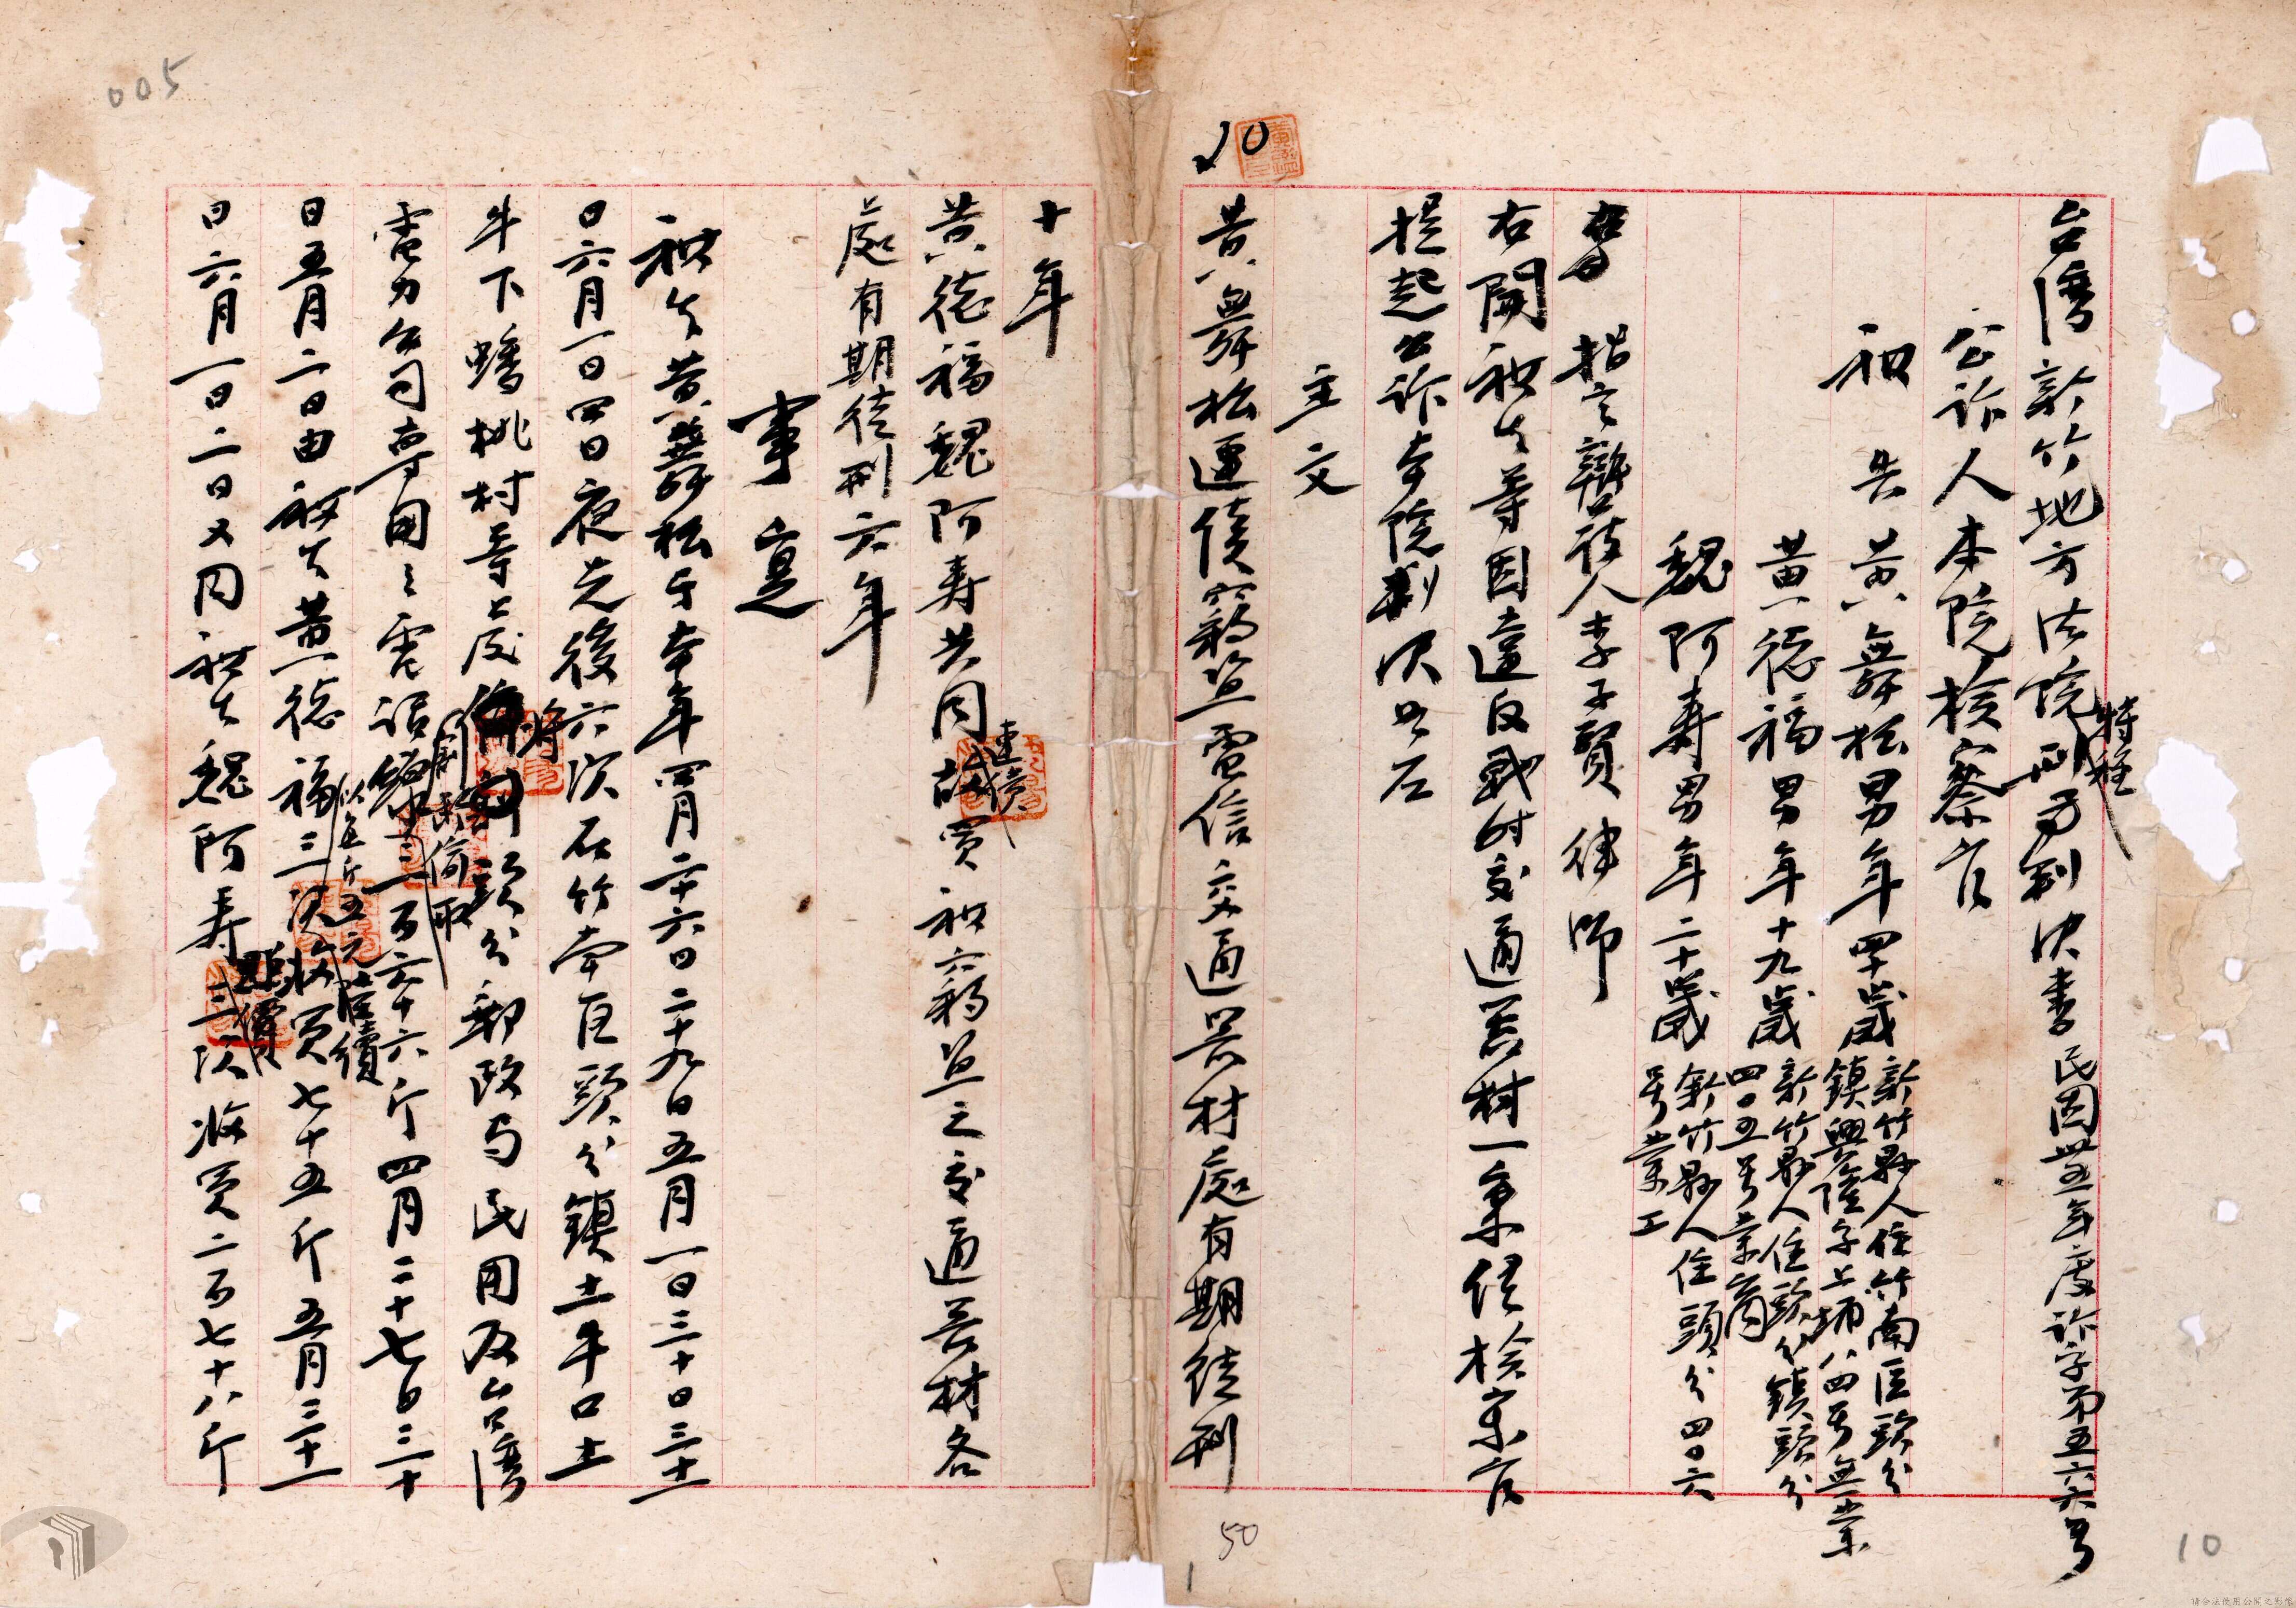 005
10
台灣新竹地方法院刑事特種判決書 民國卅五年度訴字第五六六號
公訴人本院檢察官
被告 黃舜松 男年四十歲 新竹縣人住竹南區頭分鎮興隆字上埔八四號無業
黃德福 男年十九歲 新竹縣人住頭分鎮頭分四〇五號業商
魏阿壽 男年二十歲 新竹縣人住頭分四〇六號業工
右 指定辯護人李子賢律師
右開被告等因違反戰時交通器材一案經檢察官
提起公訴本院判決如左
主文
黃舜松連續竊盜電信交通器材處有期徒刑
十年
黃德福魏阿壽共同連續故買被竊盜之交通器材各
處有期徒刑六年
事實
被告黃舜松于本年四月二十六日二十九日五月一日三十日三十一
日六月一日四日夜先後六次在竹南區頭分鎮土牛口土
牛下蟠桃村等處將頭分郵政局民用及台灣
電力公司專用之電話線剪斷偷取三百六十六斤四月二十七日三十
日五月二日由被告黃德福三次以每斤五元陸續收買七十五斤五月三十一
日六月一日二日又同被告魏阿壽三次照價收買二百七十八斤
50
1
10
請合法使用公開之影像